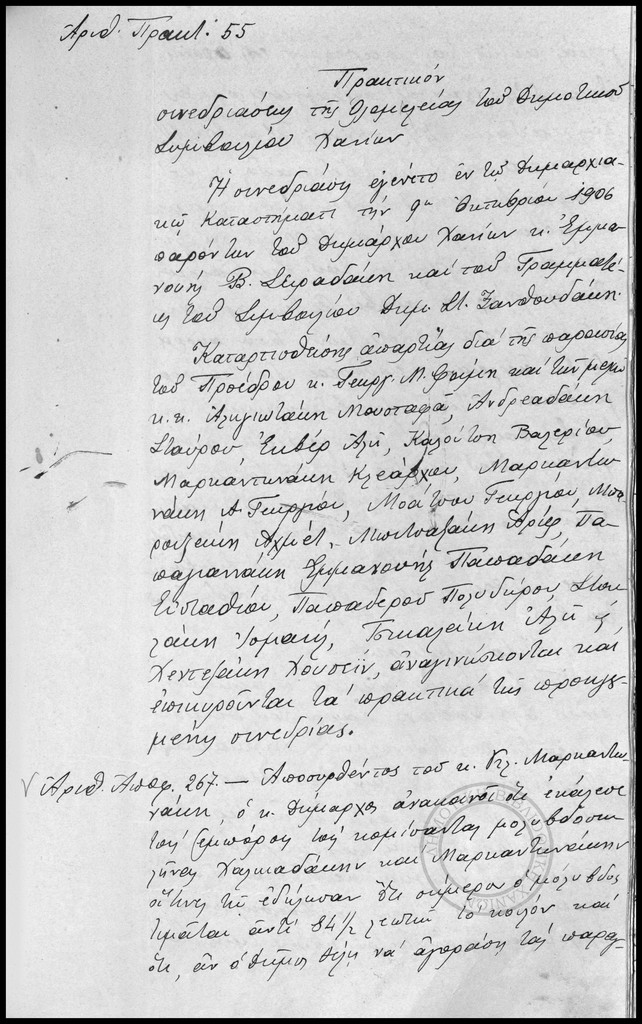 Αριθ. Πρακτ: 55
Πρακτικόν
συνεδριάσεως της Ολομελείας του Δημοτικού
Συμβουλίου Χανίων
Η συνεδρίασις εγένετο εν τω Δημαρχια-
κώ Καταστήματι την 9η Οκτωβρίου 1906
παρόντων του Δημάρχου Χανίων κ. Εμμα-
νουήλ Β. και του Γραμματέ-
ως του Συμβουλίου Δημ. Στ. Ξανθουδάκη.
Καταρτισθείσης απαρτίας διά της παρουσίας
του Προέδρου κ. Γεωργ. Μ. και των μελών
κ.κ. Μουσταφά, Ανδρεαδάκη
Σταύρου Εκβέρ Αλή, Καλούτση Βαλερίου
Μαρκαντωνάκη Κλεάρχου, Μαρκαντω-
νάκη Α. Γεωργίου, Μοάτσου Γεωργίου,
Αχμέτ, Αρίφ, Πα-
παγιαννάκη Εμμανουήλ Παπαδάκη
Ευσταθίου, Παπαδερού Πολυδώρου,
Ισμαήλ, Αλή
Χουσεΐν, αναγινώσκονται και
επικυρούνται τα πρακτικά της προηγου-
μένης συνεδρίας.
Αριθ. Αποφ. 267. — Αποσυρθέντος του κ. Κλ. Μαρκαντω-
νάκη, ο κ. Δήμαρχος ανακοινοί ότι εκάλεσε
τους εμπόρους τους κομίσαντας μολυβδοσω-
λήνας Χαλκιαδάκην και Μαρκαντωνάκην
οίτινες τω εδήλωσαν ότι σήμερον ο μόλυβδος
τιμάται αντί 84 1/2 λεπτών το κοιλόν και
ότι, αν ο Δήμος θέλη να αγοράση τας παραγ-